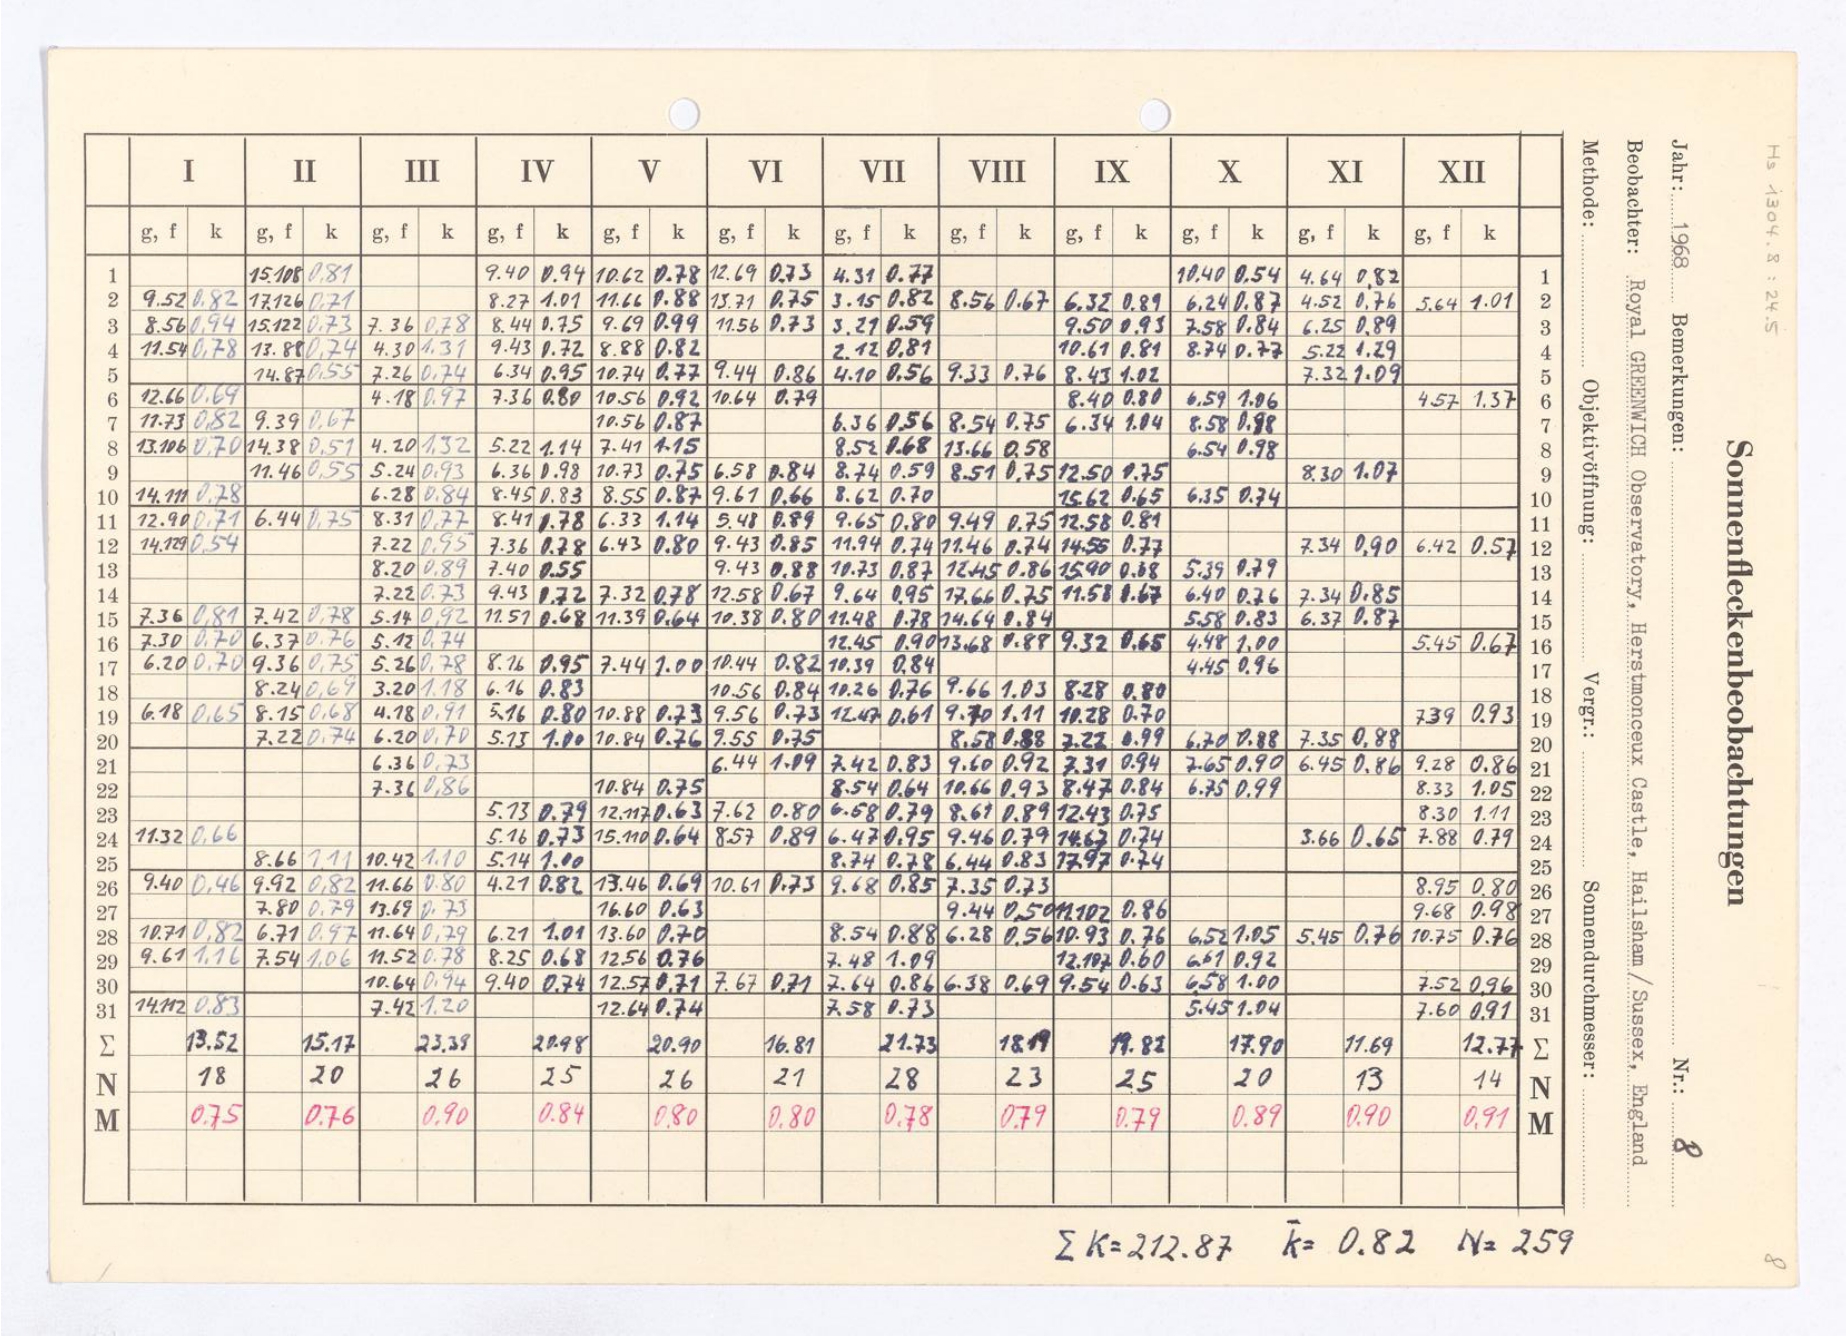 Sonnenfleckenbeobachtungen
Hs 1304.8:24.5
Jahr: 1968 Bemerkungen: Nr.: 8
Beobachter: Royal GREENWICH Observatory, Herstmonceux Castle, Hailsham/Sussex, England
Methode: Objektivöffnung: Vergr.: Sonnendurchmesser:
I II III IV V VI VII VIII IX X XI XII
g, f k g, f k g, f k g, f k g, f k g, f k g, f k g, f k g, f k g, f k g, f k g, f k
1 15.108 0.81 9.40 0.94 10.62 0.78 12.69 0.73 4.31 0.77 10.40 0.54 4.64 0.82 1
2 9.52 0.82 17.126 0.71 8.27 1.01 11.66 0.88 13.71 0.75 3.15 0.82 8.56 0.67 6.32 0.89 6.24 0.87 4.52 0.76 5.64 1.01 2
3 8.56 0.94 15.122 0.73 7.36 0.78 8.44 0.75 9.69 0.99 11.56 0.73 3.21 0.59 9.50 0.93 7.58 0.84 6.25 0.89 3
4 11.54 0.78 13.88 0.74 4.30 1.31 9.43 0.72 8.88 0.82 2.12 0.81 10.61 0.81 8.74 0.77 5.22 1.29 4
5 14.87 0.55 7.26 0.74 6.34 0.95 10.74 0.77 9.44 0.86 4.10 0.56 9.33 0.76 8.43 1.02 7.32 1.09 5
6 12.66 0.69 4.18 0.97 7.36 0.80 10.56 0.92 10.64 0.79 8.40 0.80 6.59 1.06 4.57 1.37 6
7 11.73 0.82 9.39 0.67 10.56 0.87 6.36 0.56 8.54 0.75 6.34 1.04 8.58 0.98 7
8 13.106 0.70 14.38 0.51 4.20 1.32 5.22 1.14 7.41 1.15 8.52 0.68 13.66 0.58 6.54 0.98 8
9 11.46 0.55 5.24 0.93 6.36 0.98 10.73 0.75 6.58 0.84 8.74 0.59 8.51 0.75 12.50 0.75 8.30 1.07 9
10 14.111 0.78 6.28 0.84 8.45 0.83 8.55 0.87 9.61 0.66 8.62 0.70 15.62 0.65 6.35 0.74 10
11 12.90 0.71 6.44 0.75 8.31 0.77 8.41 0.78 6.33 1.14 5.48 0.89 9.65 0.80 9.49 0.75 12.58 0.81 11
12 14.129 0.54 7.22 0.95 7.36 0.78 6.43 0.80 9.43 0.85 11.94 0.74 11.46 0.74 14.55 0.77 7.34 0.90 6.42 0.57 12
13 8.20 0.89 7.40 0.55 9.43 0.88 10.73 0.87 12.45 0.86 15.90 0.68 5.39 0.79 13
14 7.22 0.73 9.43 0.72 7.32 0.78 12.58 0.67 9.64 0.95 17.66 0.75 11.58 0.67 6.40 0.76 7.34 0.85 14
15 7.36 0.81 7.42 0.78 5.14 0.92 11.51 0.68 11.39 0.64 10.38 0.80 11.48 0.78 14.64 0.84 5.58 0.83 6.37 0.87 15
16 7.30 0.70 6.37 0.76 5.12 0.74 12.45 0.90 13.68 0.88 9.32 0.65 4.48 1.00 5.45 0.67 16
17 6.20 0.70 9.36 0.75 5.26 0.78 8.16 0.95 7.44 1.00 10.44 0.82 10.39 0.84 4.45 0.96 17
18 8.24 0.69 3.20 1.18 6.16 0.83 10.56 0.84 10.26 0.76 9.66 1.03 8.28 0.80 18
19 6.18 0.65 8.15 0.68 4.18 0.91 5.16 0.80 10.88 0.73 9.56 0.73 12.47 0.61 9.70 1.11 10.28 0.70 7.39 0.93 19
20 7.22 0.74 6.20 0.70 5.13 1.00 10.84 0.76 9.55 0.75 8.58 0.88 7.22 0.99 6.70 0.88 7.35 0.88 20
21 6.36 0.73 6.44 1.09 7.42 0.83 9.60 0.92 7.31 0.94 7.65 0.90 6.45 0.86 9.28 0.86 21
22 7.36 0.86 10.84 0.75 8.54 0.64 10.66 0.93 8.47 0.84 6.75 0.99 8.33 1.05 22
23 5.13 0.79 12.117 0.63 7.62 0.80 6.58 0.79 8.61 0.89 12.43 0.75 8.30 1.11 23
24 11.32 0.66 5.16 0.73 15.110 0.64 8.57 0.89 6.47 0.95 9.46 0.79 14.67 0.74 3.66 0.65 7.88 0.79 24
25 8.66 1.11 10.42 1.10 5.14 1.00 8.74 0.78 6.44 0.83 17.97 0.74 25
26 9.40 0.46 9.92 0.82 11.66 0.80 4.21 0.82 13.46 0.69 10.61 0.73 9.68 0.85 7.35 0.73 8.95 0.80 26
27 7.80 0.79 13.69 0.73 16.60 0.63 9.44 0.50 11.102 0.86 9.68 0.98 27
28 10.71 0.82 6.71 0.97 11.64 0.79 6.21 1.01 13.60 0.70 8.54 0.88 6.28 0.56 10.93 0.76 6.52 1.05 5.45 0.76 10.75 0.76 28
29 9.61 1.16 7.54 1.06 11.52 0.78 8.25 0.68 12.56 0.76 7.48 1.09 12.107 0.60 6.61 0.92 29
30 10.64 0.94 9.40 0.74 12.57 0.71 7.67 0.71 7.64 0.86 6.38 0.69 9.54 0.63 6.58 1.00 7.52 0.96 30
31 14.112 0.83 7.42 1.20 12.64 0.74 7.58 0.73 5.45 1.04 7.60 0.91 31
Σ 13.52 15.17 23.39 20.98 20.90 16.81 21.73 18.19 19.82 17.90 11.69 12.77 Σ
N 18 20 26 25 26 21 28 23 25 20 13 14 N
M 0.75 0.76 0.90 0.84 0.80 0.80 0.78 0.79 0.79 0.89 0.90 0.91 M
Σ K = 212.87 k̄ = 0.82 N = 259
8